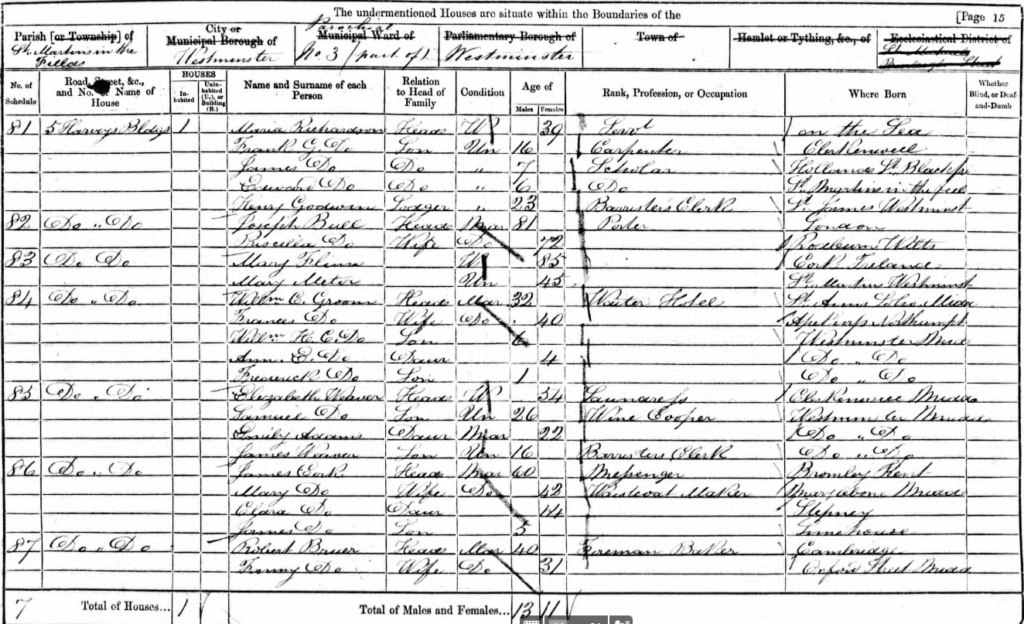 The undermentioned Houses are situate within the Boundaries of the [Page 15
Parish [or Township] of St. Martins in the Fields
City or Municipal Borough of Westminster
Municipal Ward of Parochial No 3 (part of)
Parliamentary Borough of Westminster
Town of
Hamlet or Tything, &c., of
Ecclesiastical District of
No. of Schedule
Road, Street, &c., and No. or Name of House
HOUSES Inhabited Uninhabited (U.), or Building (B.)
Name and Surname of each Person
Relation to Head of Family
Condition
Age of Males Females
Rank, Profession, or Occupation
Where Born
Whether Blind, or Deaf-and-Dumb
81 5 Harvys Bldgs 1 Maria Richardson Head W 39 Servt on the Sea
Frank G. Do Son Un 16 Carpenter Clerkenwell
James Do Do " 7 Scholar Hollands St. Blackfr
Edward Do Do " 6 Do St. Martins in the
Henry Godwin Lodger " 23 Barristers Clerk St. James Westminst
82 Do " Do Joseph Bull Head Mar 81 Porter London
Priscilla Do Wife Do 72 Rodburn Wilts
83 Do Do Mary W 85 Cork Ireland
Mary Un 45 St. Martins Westminst
84 Do " Do Willm C. Groom Head Mar 32 Waiter Hotel St. Anns Soho Middx
Frances Do Wife Do 40 Northumpt
Willm H. C. Do Son 6 Westminster Midd
Ann. E. Do Daur 4 Do " Do
Frederick Do Son 1 Do " Do
85 Do " Do Elizabeth Weaver Head W 54 Laundress
Samuel Do Son Un 26 Wine Cooper Westminster
Emily Adams Daur Mar 22 Do " Do
James Weaver Son Un 16 Barristers Clerk Do " Do
86 Do " Do James Cork Head Mar 60 Messenger Bromley Kent
Mary Do Wife Do 42 Waistcoat Maker
Clara Do Daur 14 Stepney
James Do Son 5 Limehouse
87 Do " Do Robert Head Mar 40 Foreman Baker Cambridge
Fanny Do Wife Do 31 Street
7 Total of Houses... 1 Total of Males and Females... 13 11